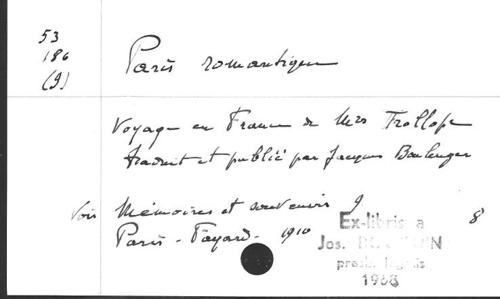 53
186
(9)
Paris romantique
Voyage en France de Mrs Trollope
traduit et publié par Jacques Boulenger
Voir Mémoires et souvenirs 9
8
Paris - Fayard - 1910
Ex-libris a
Jos.
presb.
1968